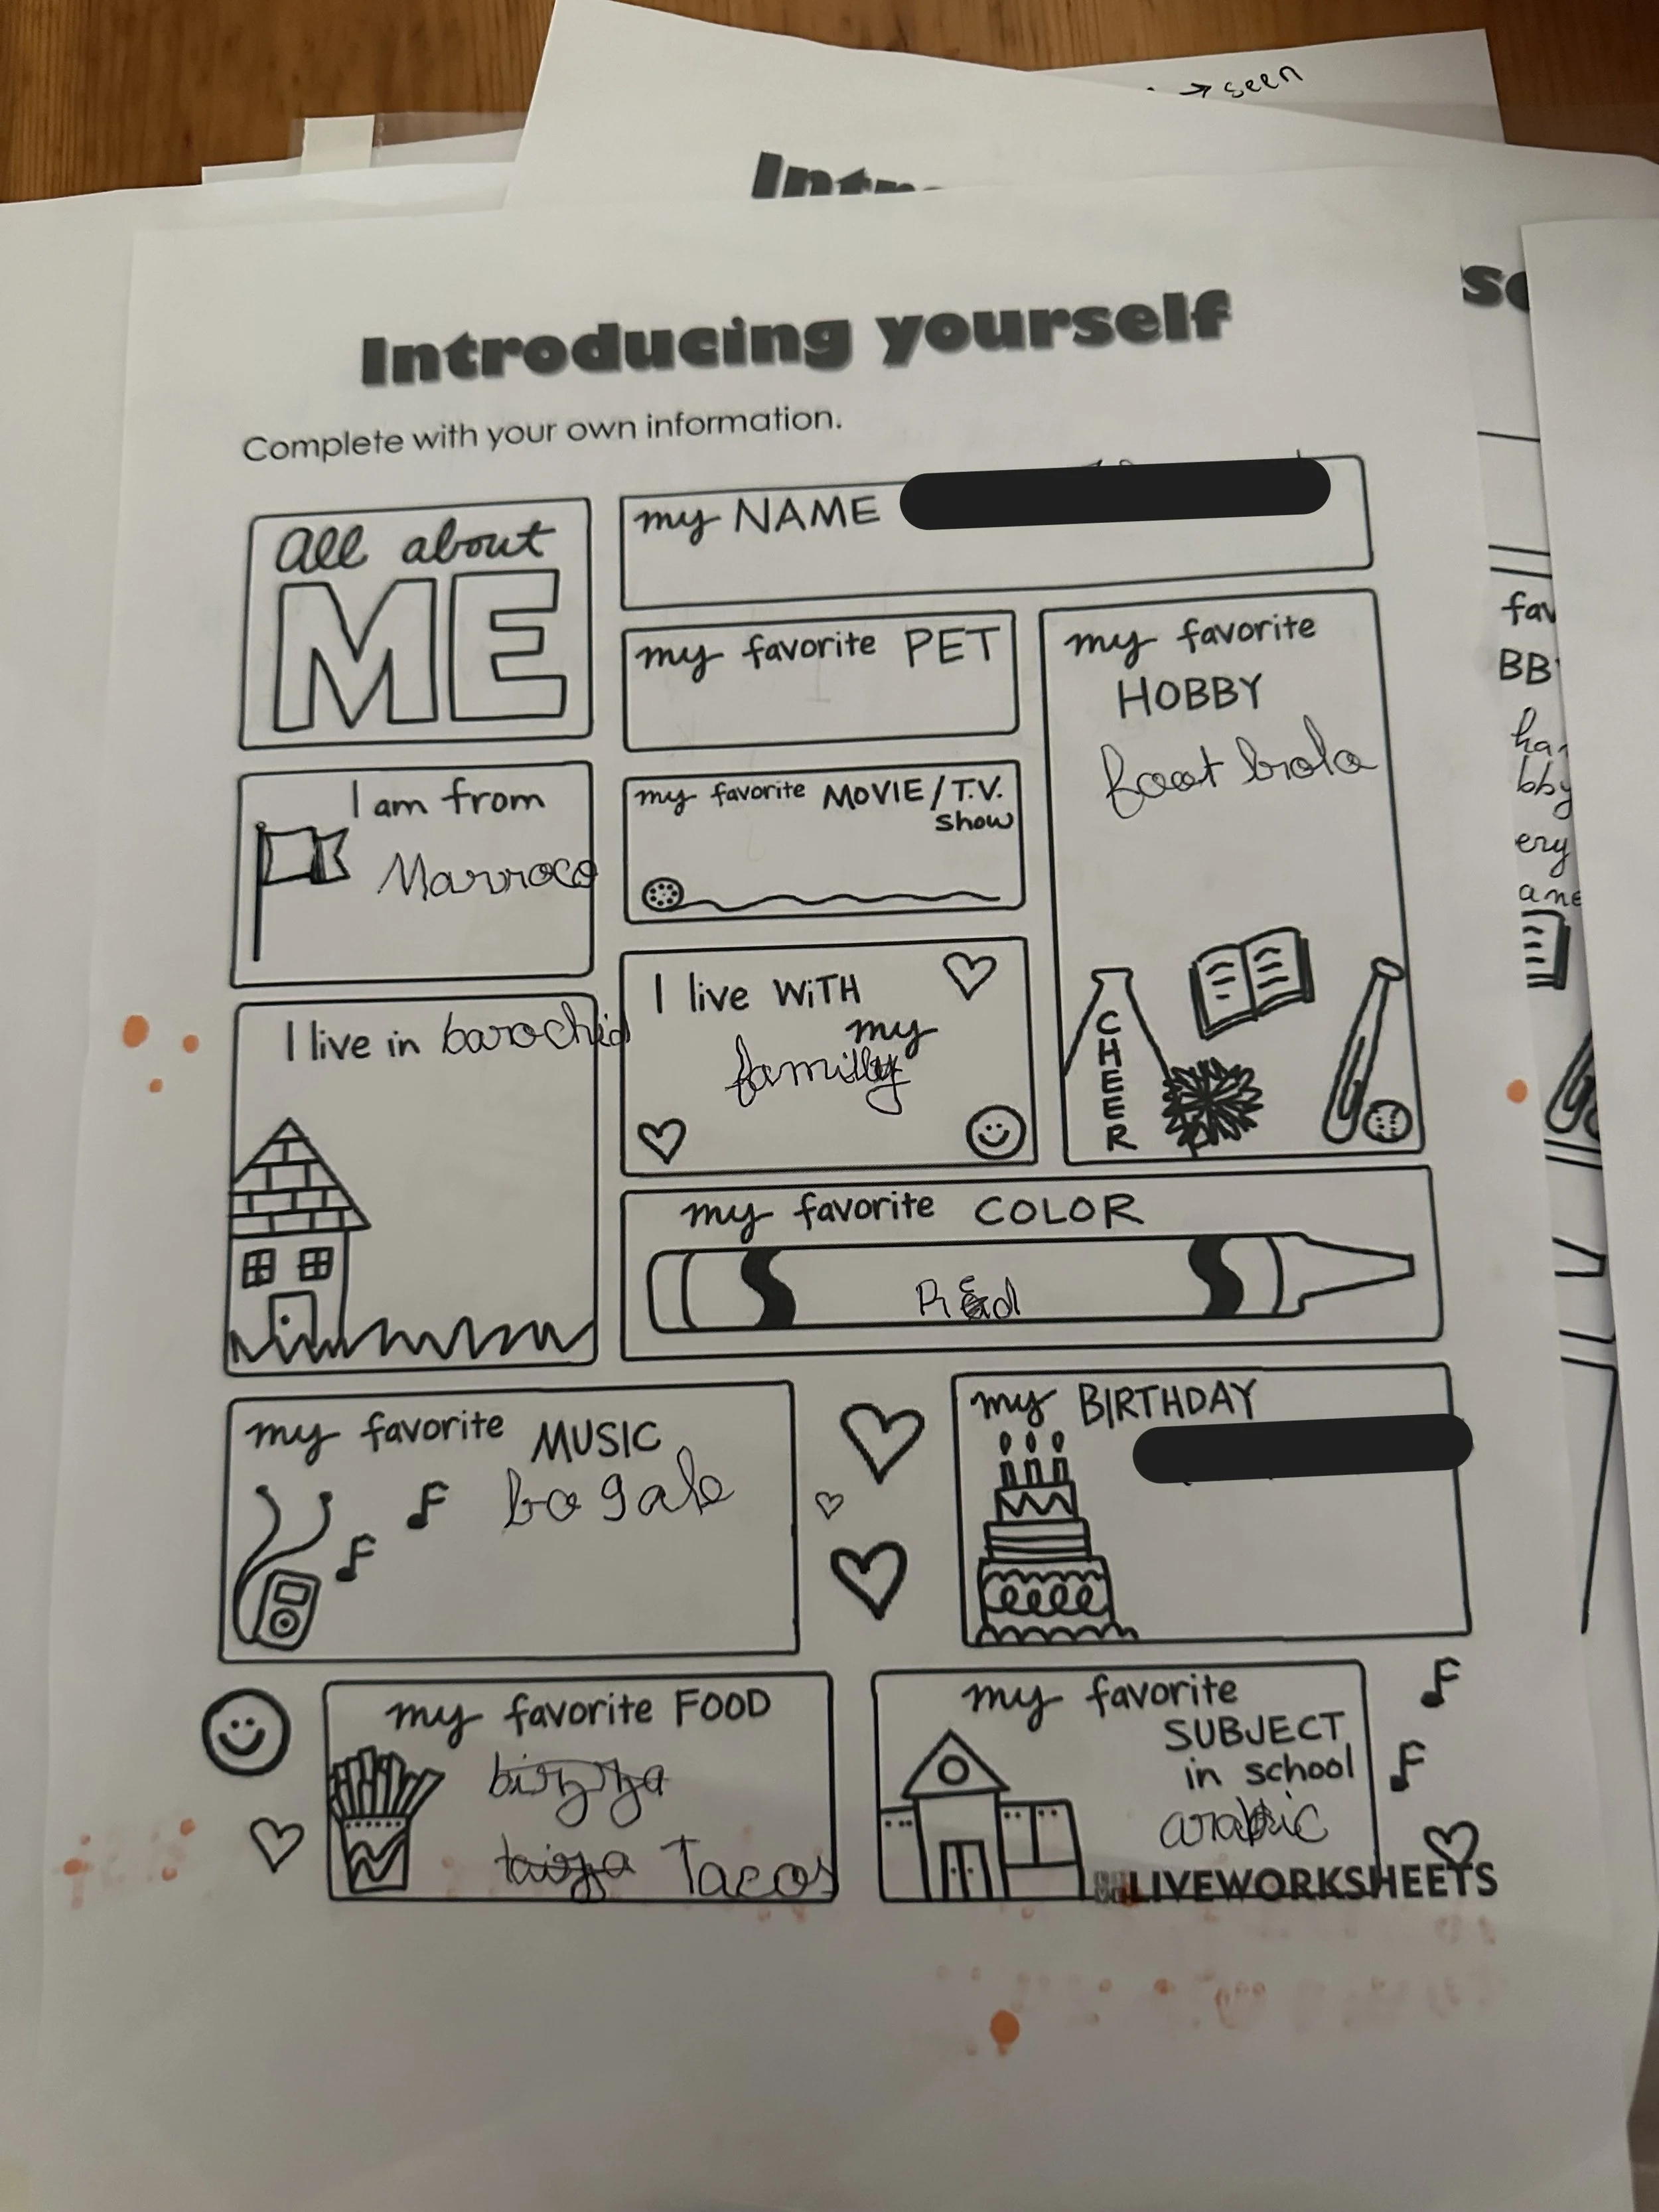 → seen
Introducing yourself
Complete with your own information.
all about
ME
my NAME
my favorite PET
my favorite
HOBBY
foot bola
I am from
Marroco
my favorite MOVIE/T.V.
show
I live in barochid
I live WiTH
my
familly
CHEER
my favorite COLOR
Red
my favorite MUSIC
bo gale
my BIRTHDAY
my favorite FOOD
bizza
Tacos
my favorite
SUBJECT
in school
arabic
LIVEWORKSHEETS
fav
BB
bby
ery